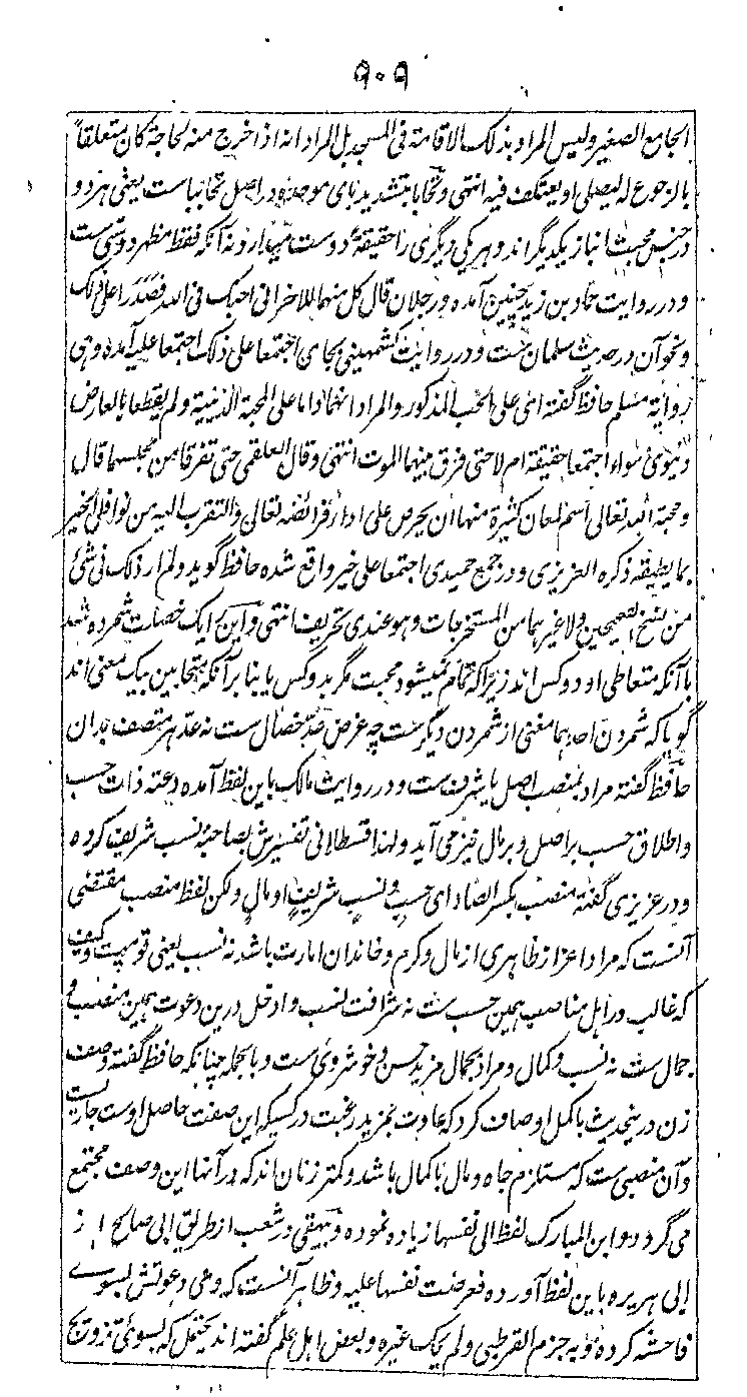 ۹۰۹
الجامع الصغیر ولیس المراد بذلک الاقامتہ فی المسجد بل المراد انہ اذا خرج منہ لحاجۃ کان متعلقاً
بالرجوع لہ لیصلی او یعتکف فیہ انتہی و تحابا بتشدید بای موحدہ در اصل تحاببا ست یعنی ہر دو
در جنس محبت انباز یکدیگر اند و ہر یکی دیگری را حقیقۃً دوست میدارد نہ آنکہ فقط مظہر دوستی ست
و در روایت حماد بن زید چنین آمدہ و رجلان قال کل منہما للآخر انی احبک فی اللہ فصدرا علی ذلک
و نحو آن در حدیث سلمان ست و در روایت کشمہینی بجای اجتمعا علی ذلک اجتمعا علیہ آمدہ وہی
روایۃ مسلم حافظ گفتہ ای علی الحب المذکور والمراد انہما داما علی المحبۃ الدینیۃ ولم یقطعا بالعارض
دنیوی سواء اجتمعا حقیقۃ ام لا حتی فرق بینہما الموت انتہی وقال العلقمی حتی تفرقا من مجلسہما قال
ومحبۃ اللہ تعالی اسم لمعان کثیرۃ منہا ان یحرص علی اداء فرائضہ تعالی والتقرب الیہ من نوافل الخیر
بما یطیقہ ذکرہ العزیزی و در جمع حمیدی اجتمعا علی خیر واقع شدہ حافظ گوید ولم ار ذلک فی شئ
من نسخ الصحیحین ولا غیرہما من المستخرجات وہو عندی تحریف انتہی و این یک خصلت شمردہ شد
با آنکہ متعاطی او دو کس اند زیرا کہ تمام نمیشود محبت مگر بدو کس یا بنا بر آنکہ متحابین بیک معنی اند
گویا کہ شمردن احدہما مغنی از شمردن دیگر ست چہ غرض عد خصال ست نہ عد ہر متصف بدان
حافظ گفتہ مراد بمنصب اصل یا شرف ست و در روایت مالک باین لفظ آمدہ دعتہ ذات حسب
و اطلاق حسب بر اصل و بر مال نیز می آید و لہذا قسطلانی تفسیرش بصاحبۂ نسب شریف کردہ
و در عزیزی گفتہ منصب بکسر الصاد ای حسب و نسب شریف او مال و لکن لفظ منصب مقتضی
آنست کہ مراد اعزاز ظاہری از مال و کرم و خاندان امارت باشد نہ نسب یعنی قومیت و کیف
کہ غالب در اہل مناصب ہمین حسب ست نہ شرافت نسب و ادخل درین دعوت ہمین منصب و
جمال ست نہ نسب و کمال و مراد بجمال مزید حسن و خوشروئی ست و بالجملہ چنانکہ حافظ گفتہ وصف
زن درینحدیث باکمل اوصاف کرد کہ عادت بمزید رغبت در کسیکہ این صفت حاصل اوست جاریست
و آن منصبی ست کہ مستلزم جاہ و مال با کمال باشد و کمتر زنان اند کہ در آنہا این وصف مجتمع
می گردد و ابن المبارک لفظ الی نفسہا زیادہ نمودہ و بیہقی در شعب از طریق ابی صالح از
ابی ہریرہ باین لفظ آوردہ فعرضت نفسہا علیہ و ظاہر آنست کہ وی دعوتش بسوے
فاحشہ کردہ و بہ جزم القرطبی ولم یحک غیرہ و بعض اہل علم گفتہ اند یحتمل کہ بسوی تزویج